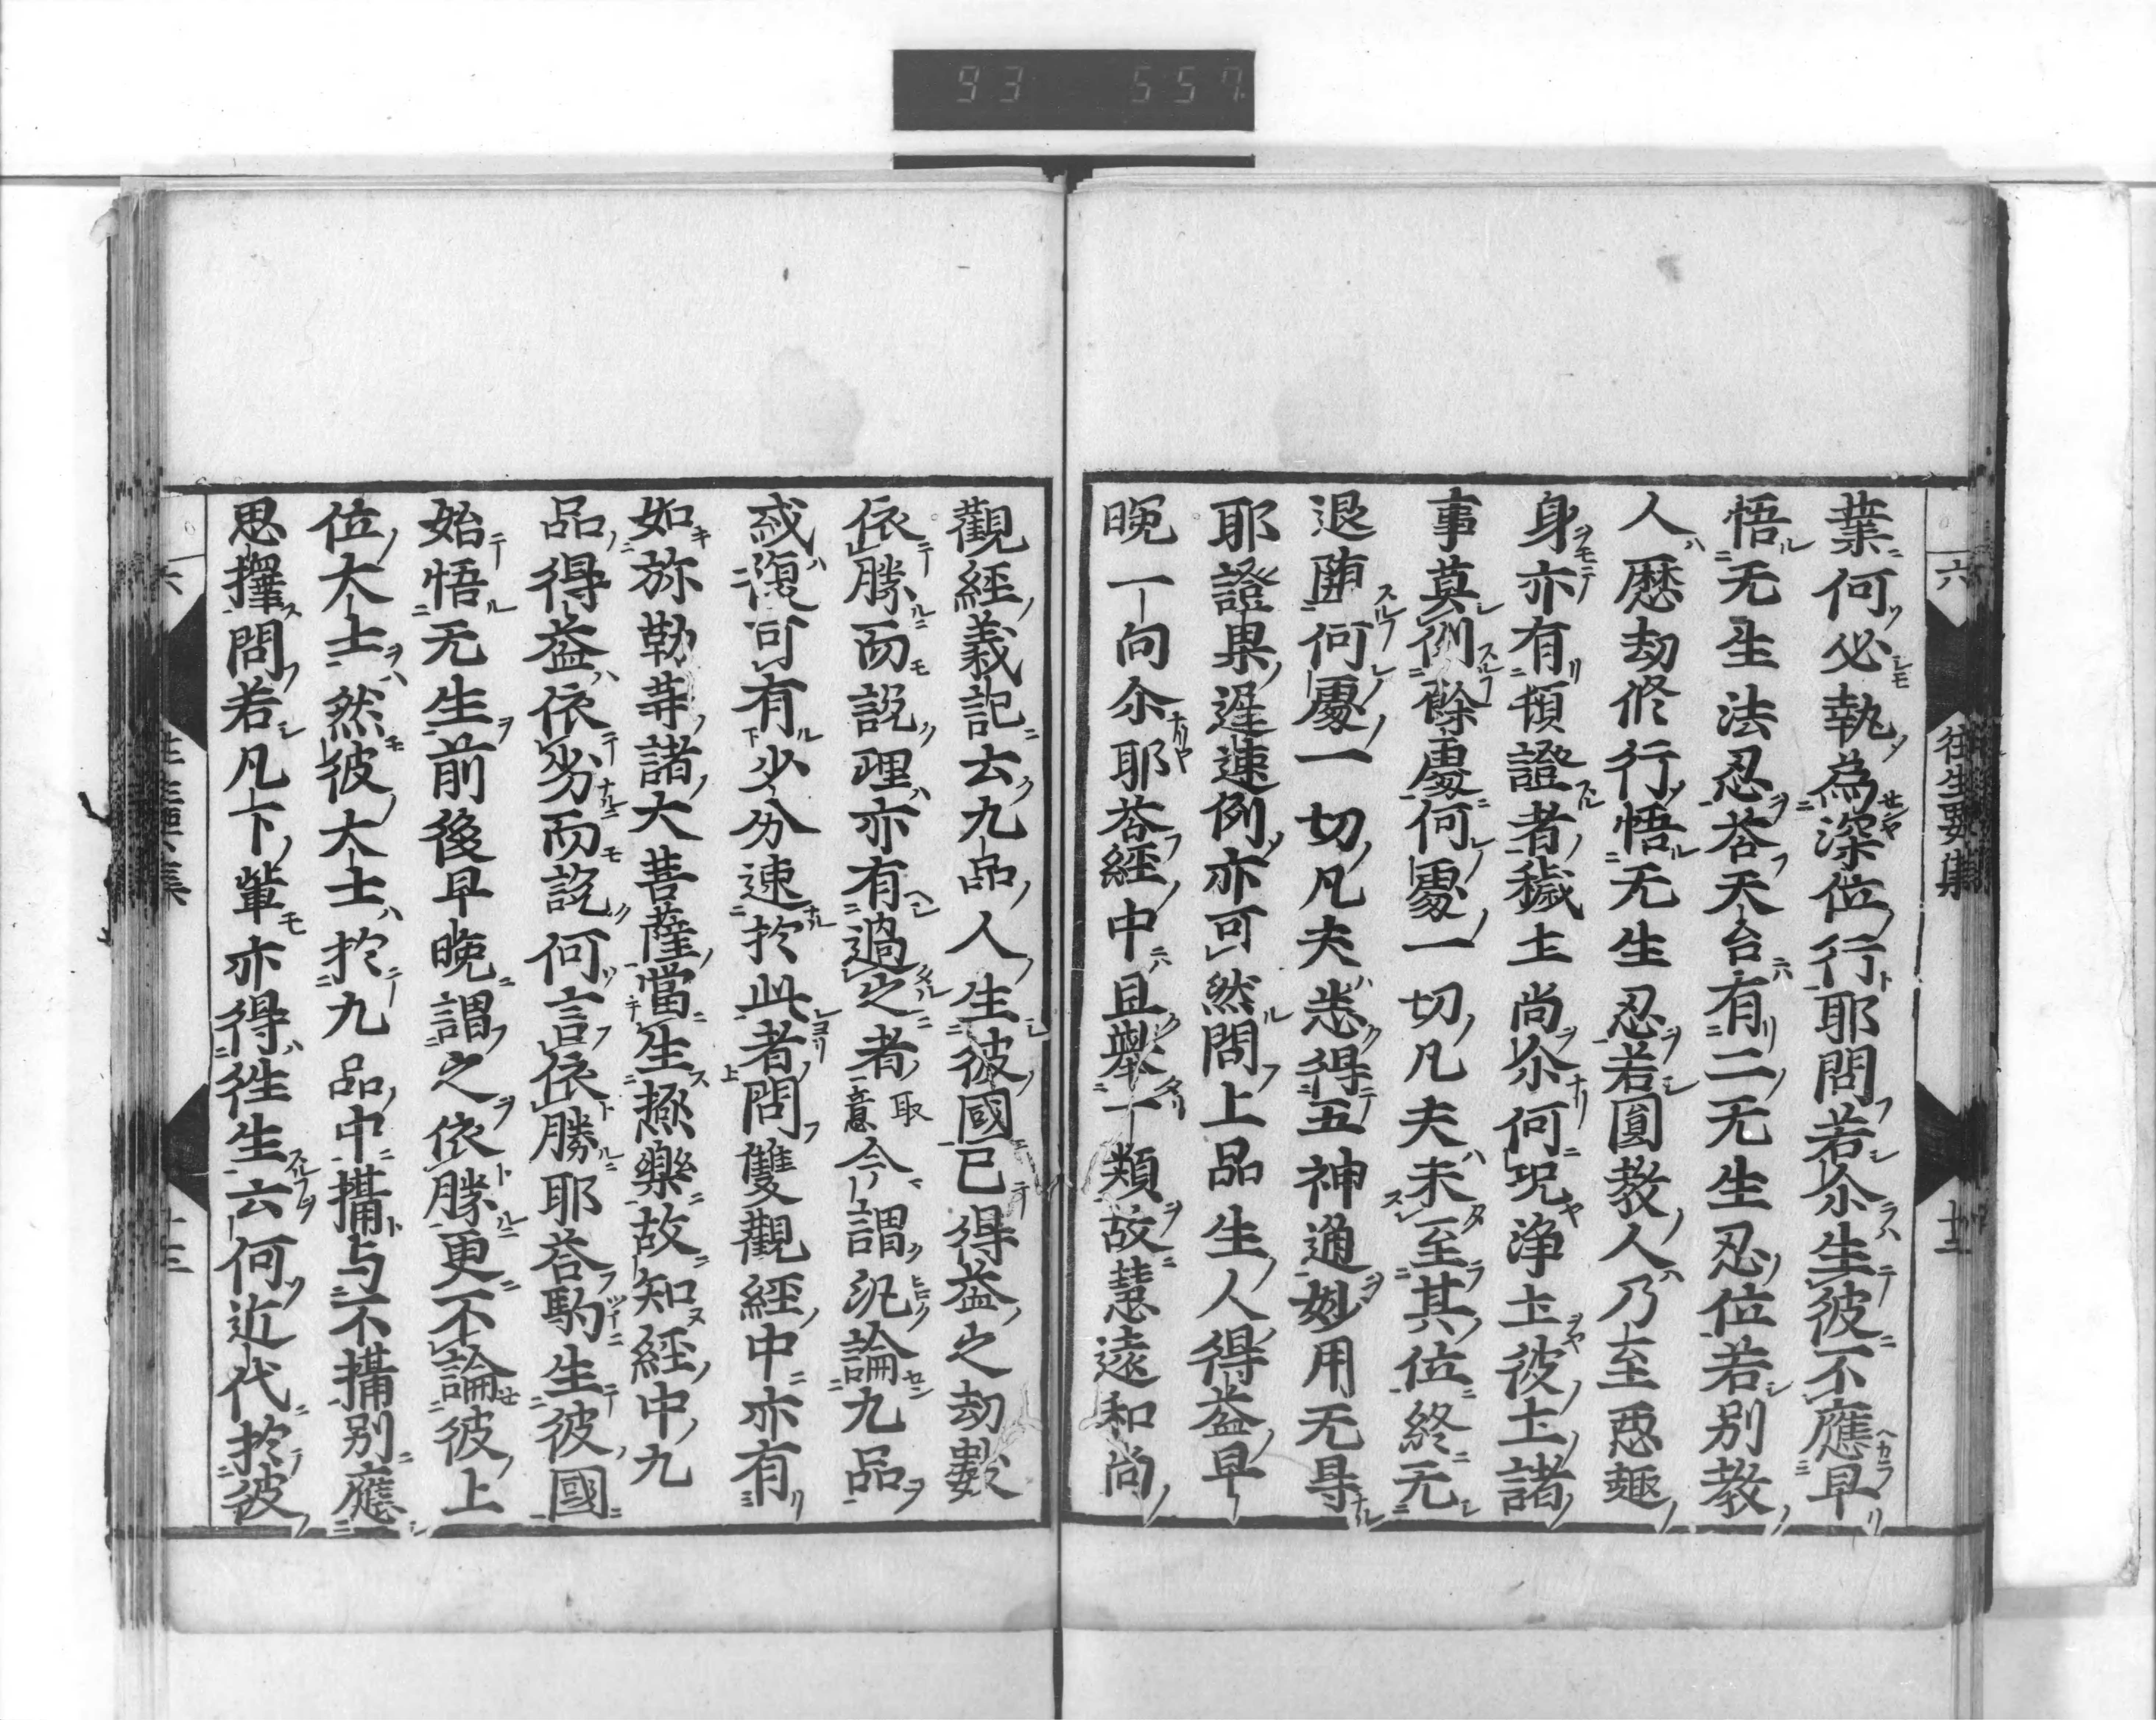 93 5:57
六 往生要集 十三
業何必執為深位行耶問若尒生彼不應早
悟无生法忍荅天台有二无生忍位若別教
人歴劫修行悟无生忍若圓教人乃至悪趣
身亦有頓證者穢土尚尒何況浄土彼土諸
事莫例餘處何處一切凡夫未至其位終无
退堕何處一切凡夫悉得五神通妙用无㝵
耶證果遅速例亦可然問上品生人得益早
晩一向尒耶荅經中且舉一類故慧遠和尚
觀經義記云九品人生彼國已得益之劫數
依勝而説理亦有過之者取意今謂汎論九品
或復可有少分速於此者問雙觀經中亦有
如弥勒等諸大菩薩當生極樂故知經中九
品得益依劣而説何言依勝耶荅駒生彼國
始悟无生前後早晩謂之依勝更不論彼上
位大士然彼大士於九品中攝与不攝別應
思擇問若凡下輩亦得往生云何近代於彼
六 往生要集 十三